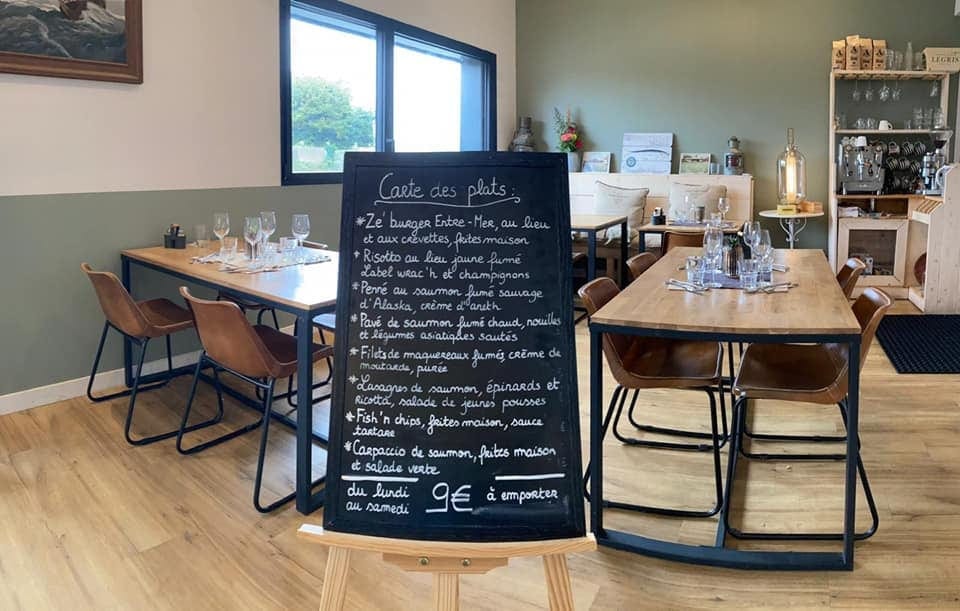 Carte des plats :
*Ze' burger Entre-Mer, au lieu
et aux crevettes, frites maison
*Risotto au lieu jaune fumé
Label wrac'h et champignons
*Penné au saumon fumé sauvage
d'Alaska, crème d'aneth
*Pavé de saumon fumé chaud, nouilles
et légumes asiatiques sautés
*Filets de maquereaux fumés, crème de
moutarde, purée
*Lasagnes de saumon, épinards et
ricotta, salade de jeunes pousses
*Fish'n chips, frites maison, sauce
tartare
*Carpaccio de saumon, frites maison
et salade verte
du lundi
au samedi
9€
à emporter
LEGRIS